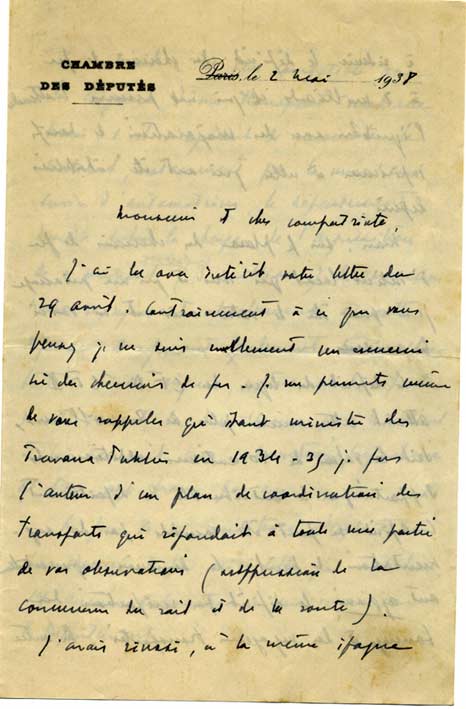 CHAMBRE
DES DÉPUTÉS
Paris, le 2 mai 1938
Monsieur et cher compatriote,
J'ai lu avec intérêt votre lettre du
29 avril. Contrairement à ce que vous
pensez je ne suis nullement un ennemi
né des chemins de fer. Je me permets même
de vous rappeler qu'étant ministre des
Travaux Publics en 1934-35 je fus
l'auteur d'un plan de coordination des
transports qui répondait à toute une partie
de vos observations (suppression de la
concurrence du rail et de la route).
J'avais réussi, à la même époque